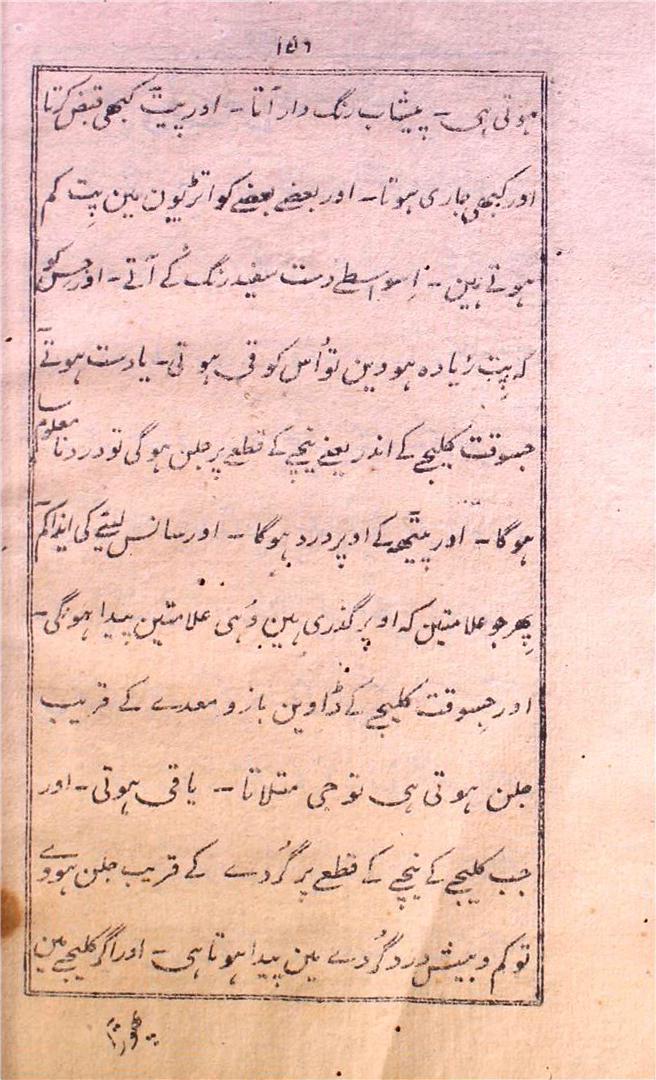 ۱۵۶
ہوتی ہی ۔ پیشاب رنگ دار آتا ۔ اور پیٹ کبھی قبض کرتا
اور کبھی جاری ہوتا ۔ اور بعضے بعضے کو انتڑیون مین پِت کم
ہوتے ہین ۔ اِسواسطے دست سفید رنگ کے آتے ۔ اور جس کو
کہ پِت زیادہ ہووین تو اُس کو قی ہوتی ۔ یا دست ہوتے
جسوقت کلیجے کے اندر یعنے نیچے کے قطع پر جلن ہوگی تو درد نا معلوم
ہوگا ۔ اور پیٹھ کے اوپر درد ہوگا ۔ اور سانس لینے کی ایذا کم
پھر جو علامتین کہ اوپر گذری ہین وُہی علامتین پیدا ہونگی ۔
اور جسوقت کلیجے کے ڈاوین بازو معدے کے قریب
جلن ہوتی ہی تو جی متلاتا ۔ یا قی ہوتی ۔ اور
جب کلیجے کے نیچے کے قطع پر گُردے کے قریب جلن ہووے
تو کم و بیش درد گُردے مین پیدا ہوتا ہی ۔ اور اگر کلیجے مین
پھوڑا